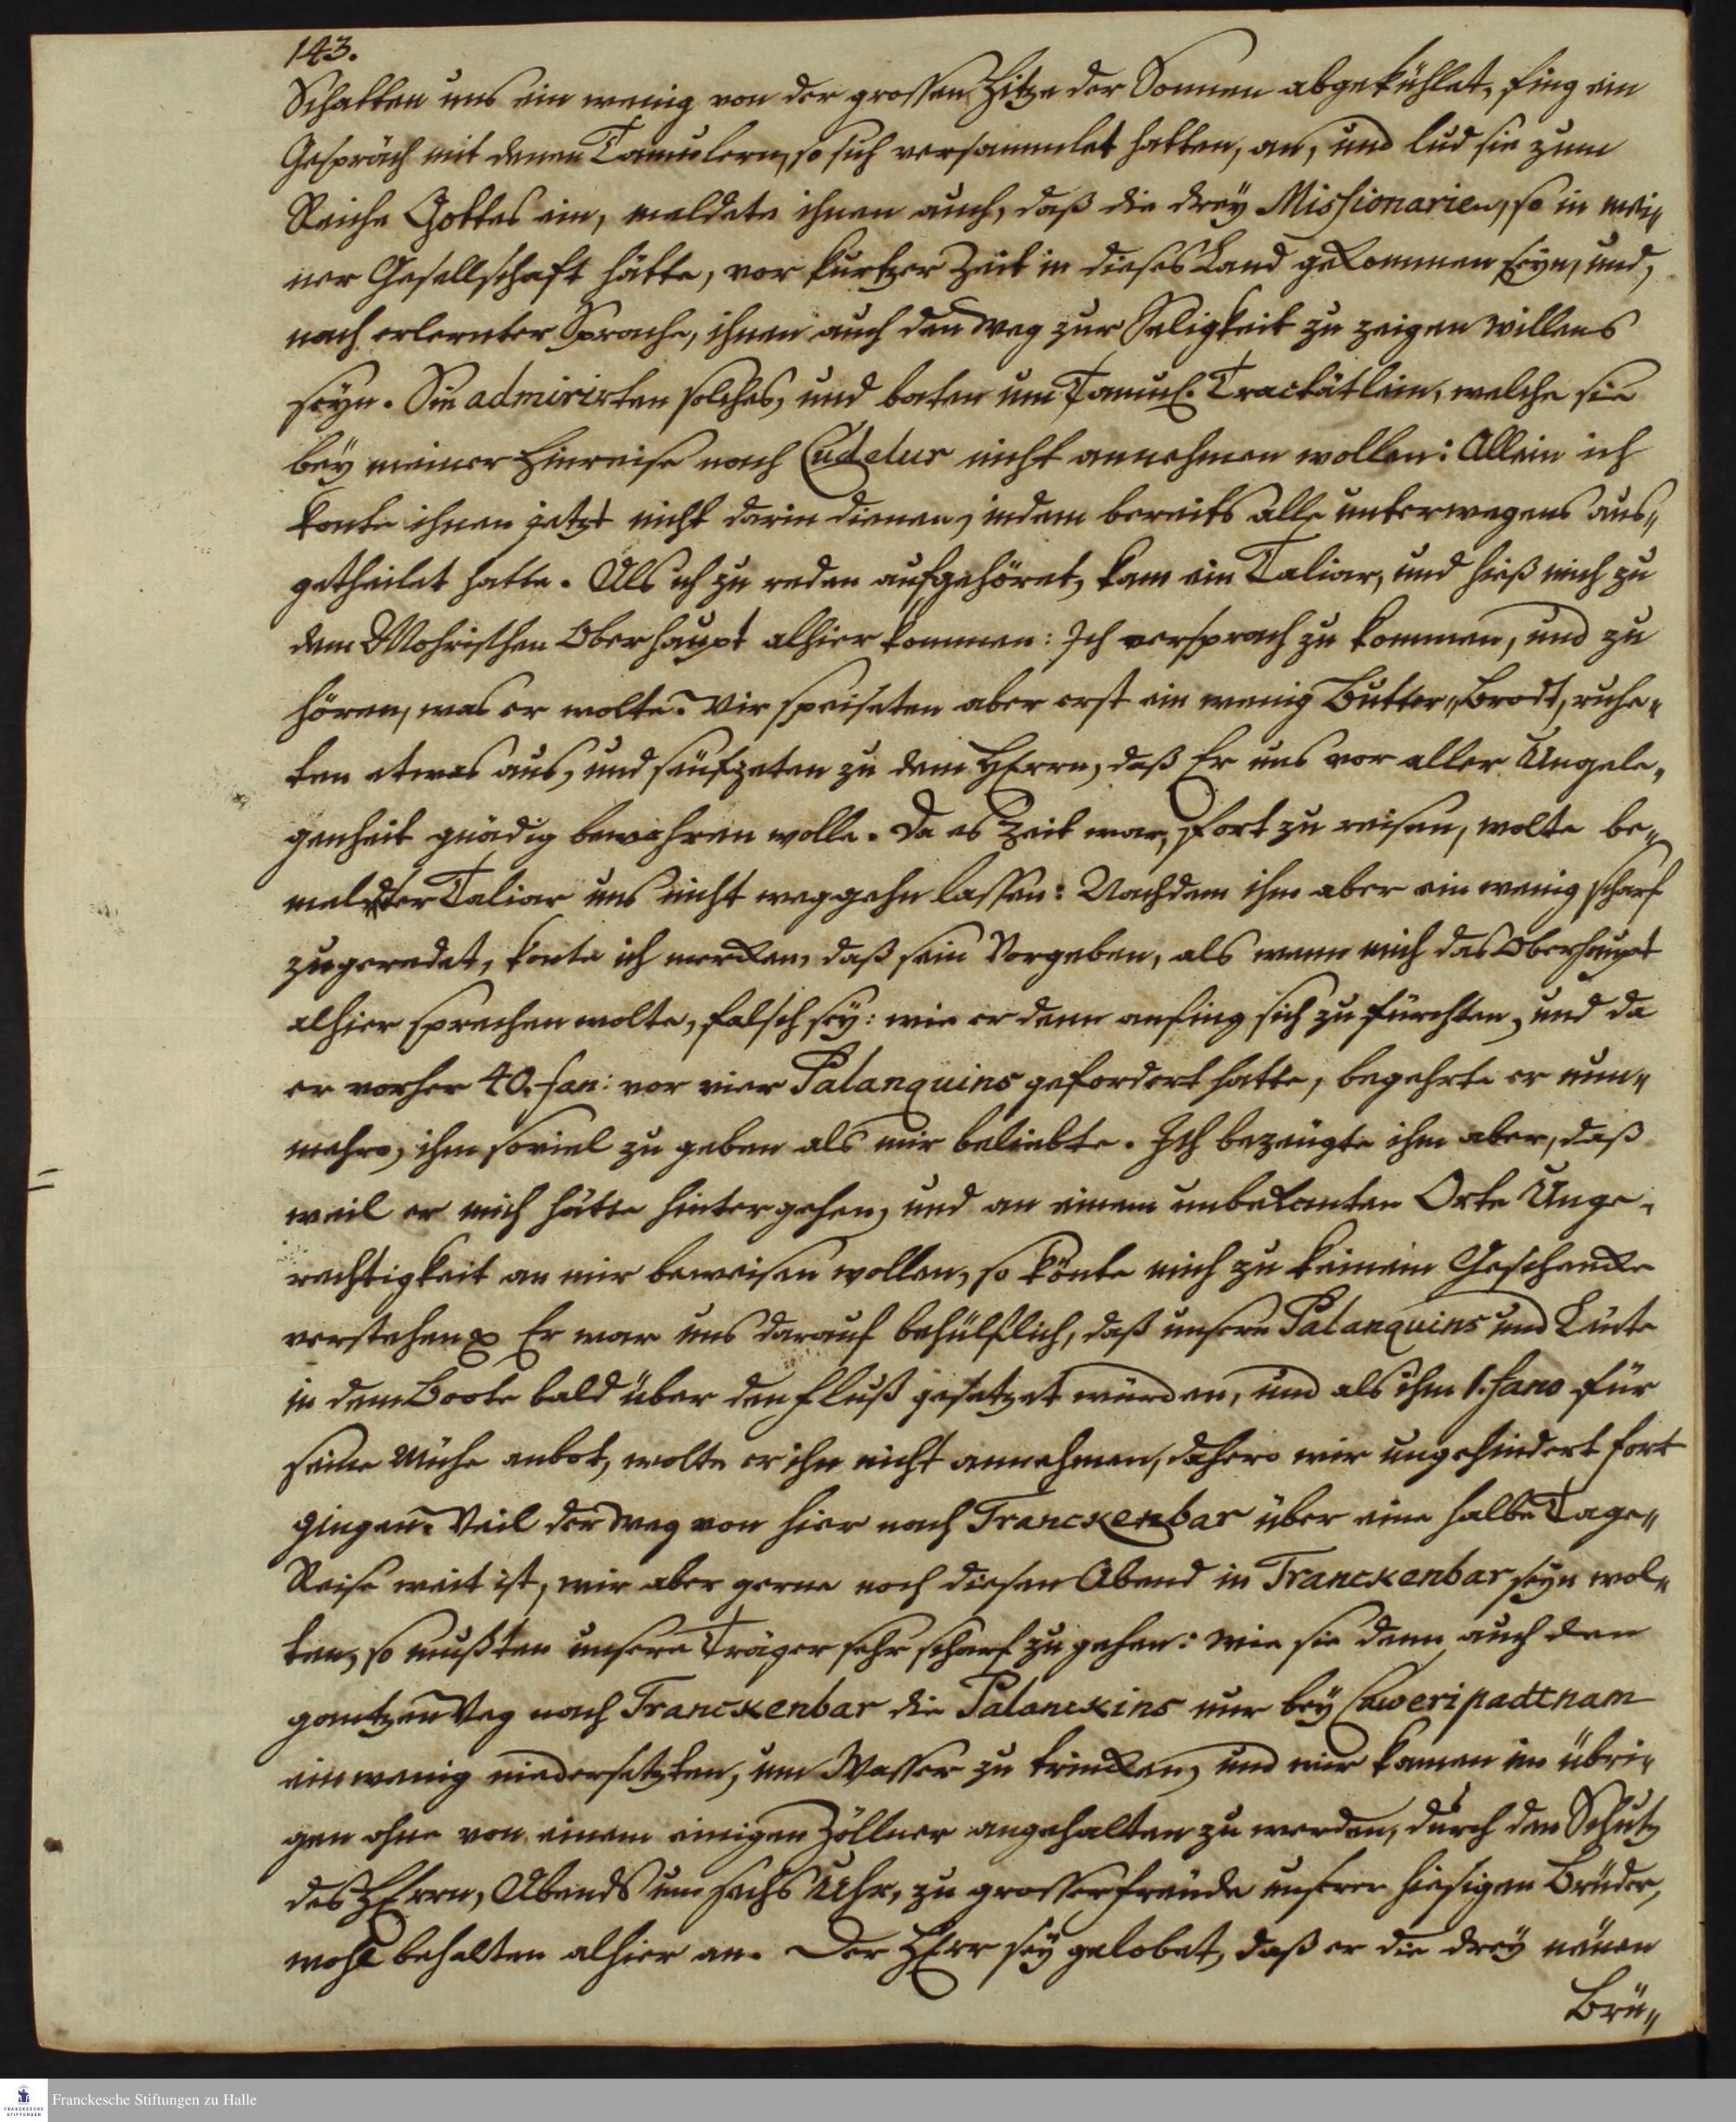 143.
Schatten uns ein wenig von der grossen Hitze der Sonnen abgekühlet, fing ein
Gespräch mit denen Tamulern, so sich versammlet hatten, an, und lud sie zum
Reiche Gottes ein, meldete ihnen auch, daß die drey Missionarien, so in mei„
ner Gesellschaft hätte, vor kurtzer Zeit in dieses Land gekommen seyn, und,
nach erlernter Sprache, ihnen auch den Weg zur Seligkeit zu zeigen willens
seyn. Sie admirirten solches, und baten um Tamul. Tractätlein, welche sie
bey meiner Hinreise nach Cudelur nicht annehmen wollen: Allein ich
konte ihnen jetzt nicht darin dienen, indem bereits alle unterwegens aus„
getheilet hatte. Als ich zu reden aufgehöret, kam ein Taliar, und hieß mich zu
dem Mohrischen Oberhaupt alhier kommen: Ich versprach zu kommen, und zu
hören, was er wolte. Wir speiseten aber erst ein wenig Butter„Brodt, ruhe„
ten etwas aus, und seufzeten zu dem HErrn, daß Er uns vor aller Ungele„
genheit gnädig bewahren wolle. Da es Zeit war, fort zu reisen, wolte be„
meldter Taliar uns nicht weggehn lassen: Nachdem ihm aber ein wenig scharf
zugeredet, konte ich mercken, daß sein Vorgeben, als wenn mich das Oberhaupt
alhier sprechen wolte, falsch sey: wie er denn anfing sich zu fürchten, und da
er vorher 40. fan: vor vier Palanquins gefordert hatte, begehrte er nun„
mehro, ihm soviel zu geben als mir beliebte. Ich bezeugte ihm aber, daß
weil er mich hätte hintergehen, und an einem unbekanten Orte Unge„
rechtigkeit an mir beweisen wollen, so könte mich zu keinem Geschencke
verstehen. Er war uns darauf behülflich, daß unsere Palanquins und Leute
in dem Boote bald über den Fluß gesetzet würden, und als ihm 1. fano für
seine Mühe anbot, wolte er ihn nicht annehmen, dahero wir ungehindert fort
gingen. Weil der Weg von hier nach Tranckenbar über eine halbe Tage„
Reise weit ist, wir aber gerne noch diesen Abend in Tranckenbar seyn wol„
ten, so mußten unsere Träger sehr scharf zu gehen: wie sie denn auch den
gantzen Weg nach Tranckenbar die Palanckins nur bey Caweripadtnam
ein wenig niedersetzten, um Wasser zu trincken, und wir kamen im übri„
gen ohne von einem einigen Zöllner angehalten zu werden, durch den Schutz
des HErrn, Abends um sechs Uhr, zu grosser Freude unserer hiesigen Brüder,
wohl behalten alhier an. Der HErr sey gelobet, daß er die drey neuen
Brü„
FRANCKESCHE STIFTUNGEN
Franckesche Stiftungen zu Halle